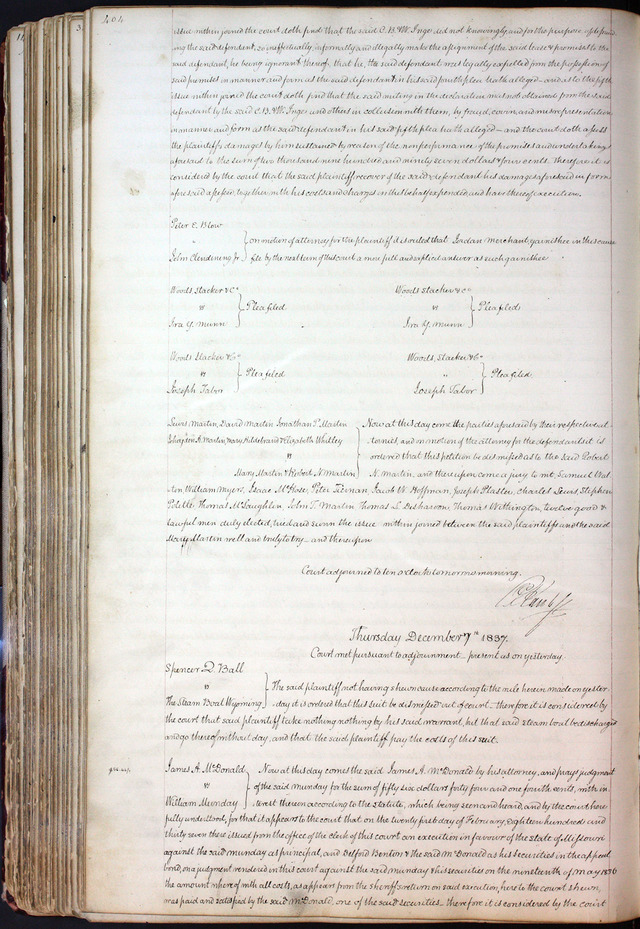 404
issue within joined the court doth find that the said C. B. & W. Inge did not knowingly and for the purpose of
ing the said defendant, so ineffectually, informally and illegally make the assignment of the said lease & premises to the
said defendant, he being ignorant thereof, that he, the said defendant was legally expelled from the possession of
said premises in manner and form as the said defendant in his said fourth plea hath alleged – and as to the fifth
issue within joined the court doth find that the said writing in the declaration was not obtained from the said
defendant by the said C. B. & W. Inge and others in collusion with them, by fraud, covin, and misrepresentation
in manner and form as the said defendant in his said fifth plea hath alleged – and the court doth assess
the plaintiff's damages by him sustained by reason of the nonperformance of the promises and undertakings
aforesaid to the sum of two thousand nine hundred and ninety seven dollars & four cents. therefore it is
considered by the court that the said plaintiff recover of the said defendant his damages aforesaid in form
aforesaid assessed, together with his costs and charges in this behalf expended, and have thereof execution.
Peter E. Blow
"
John Clendening Jr
on motion of attorney for the plaintiff it is ordered that Jordan Merchant, garnishee in this cause
file by the next term of this court a more full and explicit answer as such garnishee
Woods Stacker & Co
vs
Ira Y. Munn
Plea filed
Woods Stacker & Co
vs
Ira Y. Munn
Plea filed
Woods Stacker & Co
vs
Joseph Tabor
Plea filed
Woods, Stacker & Co
"
Joseph Tabor
Plea filed
Lewis Martin, David Martin Jonathan P. Martin
A. Martin, Mary Hildebrand & Elizabeth Whitley
vs
Mary Martin & Robert N. Martin
Now at this day come the parties aforesaid by their respective at
tornies, and on motion of the attorney for the defendants it is
ordered that this petition be dismissed as to the said Robert
N. Martin, and thereupon come a jury to wit, Samuel Wal
ton, William Myers, Isaac McHose, Peter Tiernan Jacob W. Hoffman, Joseph Plaster, Charles Lewis, Stephen
Polette, Thomas McLaughlin, John T. Martin Thomas S. Thomas Withington, twelve good &
lawful men duly elected, tried and sworn the issue within joined between the said plaintiffs and the said
Mary Martin well and truly to try – and thereupon
Court adjourned to ten o'clock tomorrow morning.
Thursday December 7th 1837.
Court met pursuant to adjournment – present as on yesterday
Spencer Q. Ball
vs
The Steam Boat Wyoming.
The said plaintiff not having shewn cause according to the rule herein made on yester
day it is ordered that this suit be dismissed out of court – therefore it is considered by
the court that said plaintiff take nothing nothing by his said warrant, but that said steam boat be discharged
and go thereof without day, and that the said plaintiff pay the costs of this suit.
James A. McDonald
vs
William Munday
Now at this day comes the said James A. McDonald by his attorney, and prays judgment
of the said Munday for the sum of fifty six dollars forty four and one fourth cents, with in
terest thereon according to the statute, which being seen and heard, and by the court here
fully understood, for that it appears to the court that on the twenty first day of February, eighteen hundred and
thirty seven there issued from the office of the clerk of this court an execution in favour of the State of Missouri
against the said Munday as principal, and Belford Benton & the said McDonald as his securities in the appeal
bond, on a judgment rendered in this court against the said Munday & his securities on the nineteenth of May 1836
the amount whereof with all costs, as appears from the sheriff's return on said execution, here to the court shewn,
was paid and satisfied by the said McDonald, one of the said securities – therefore it is considered by the court